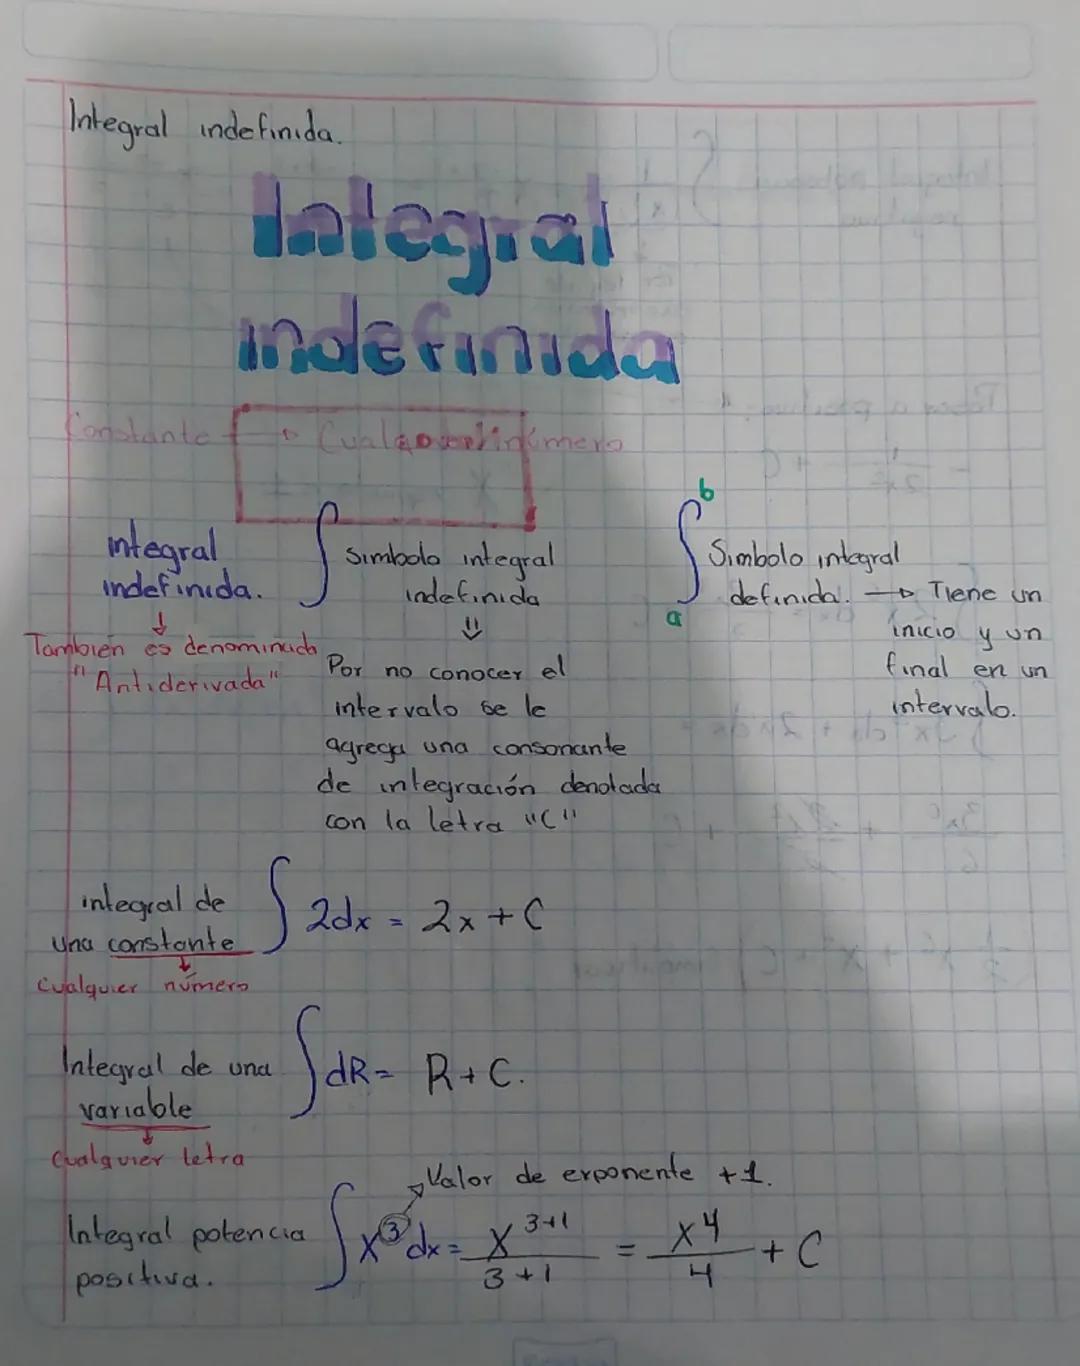 Integral indefinida.
Integral
indefinida
Constante → Cualquier número
integral
indefinida.
También es denominada
"Antiderivada"
∫ Simbolo integral
indefinida
⇓
Por no conocer el
intervalo se le
agrega una consonante
de integración denotada
con la letra "C"
∫ b a Simbolo integral
definida. → Tiene un
inicio y un
final en un
intervalo.
integral de
una constante
cualquier número
∫ 2dx = 2x + C
Integral de una
variable
Cualquier letra
∫ dR = R + C.
Valor de exponente +1.
Integral potencia
positiva.
∫ x³ dx = x^(3+1) / (3+1) = x^4 / 4 + C